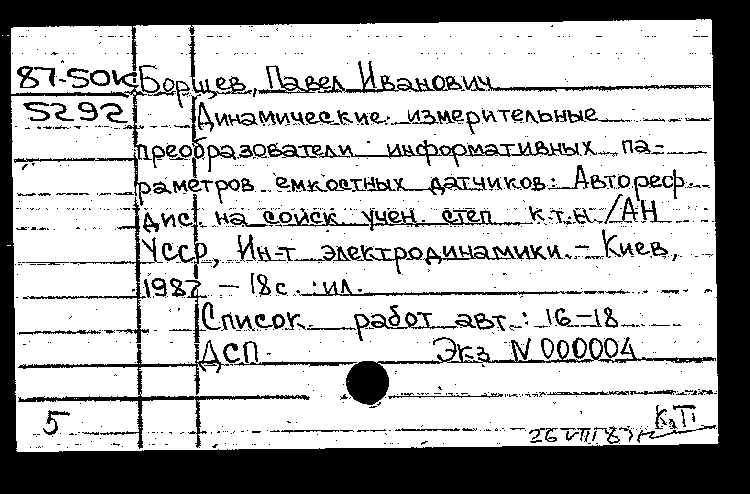 87-50к Борщев, Павел Иванович
5292 Динамические измерительные
преобразователи информативных па-
раметров емкостных датчиков: Автореф.
дис. на соиск. учен. степ к.т.н. /АН
УССР, Ин-т электродинамики. – Киев,
1987 – 18с. :ил.
Список работ авт.: 16–18
ДСП. Экз N 000004
5
26 VIII 87